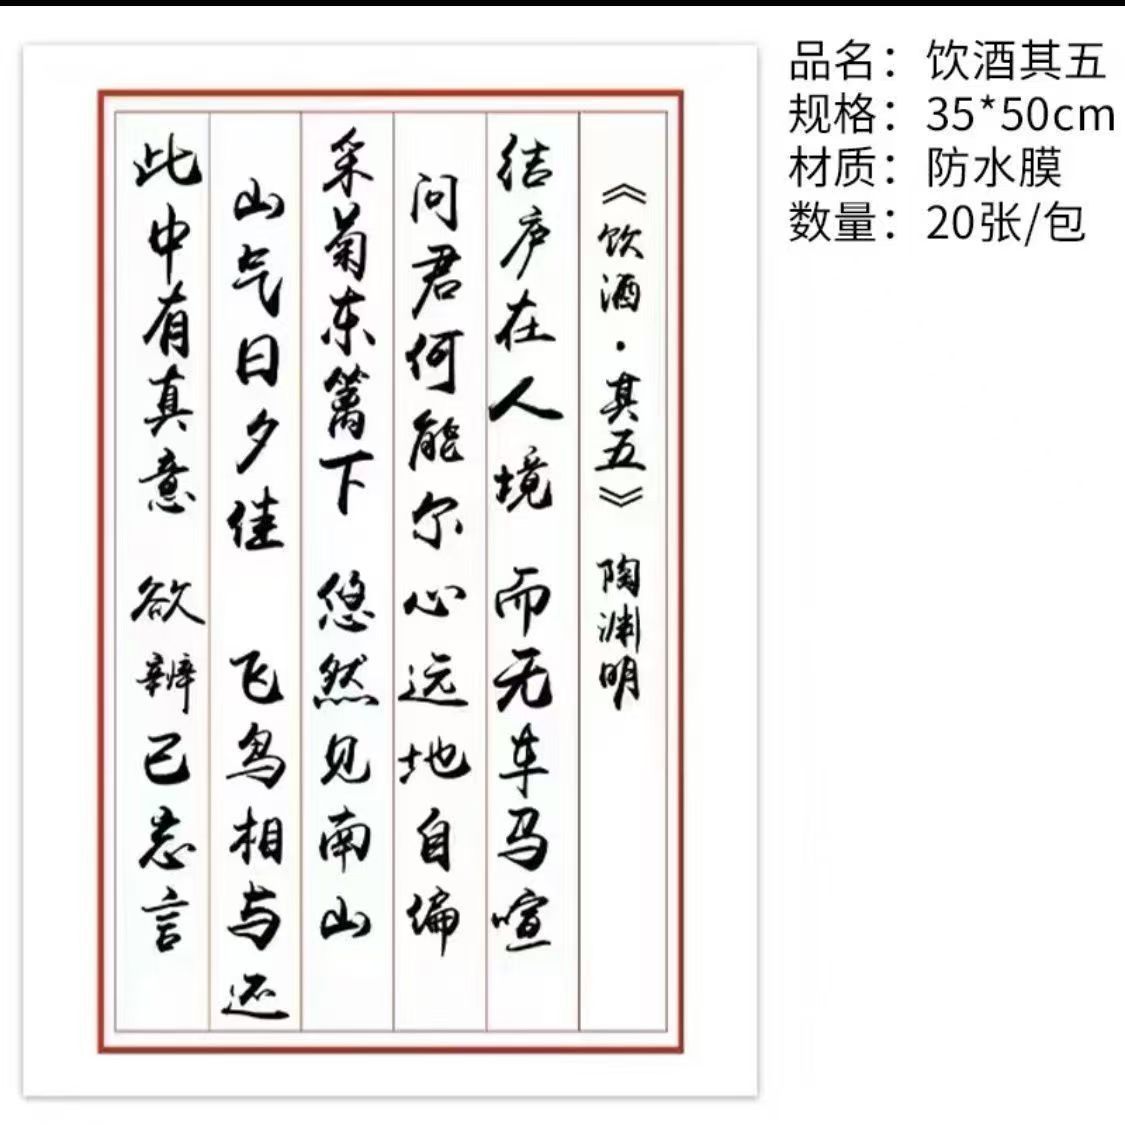 《饮酒·其五》 陶渊明
结庐在人境 而无车马喧
问君何能尔 心远地自偏
采菊东篱下 悠然见南山
山气日夕佳 飞鸟相与还
此中有真意 欲辨已忘言
品名：饮酒其五
规格：35*50cm
材质：防水膜
数量：20张/包